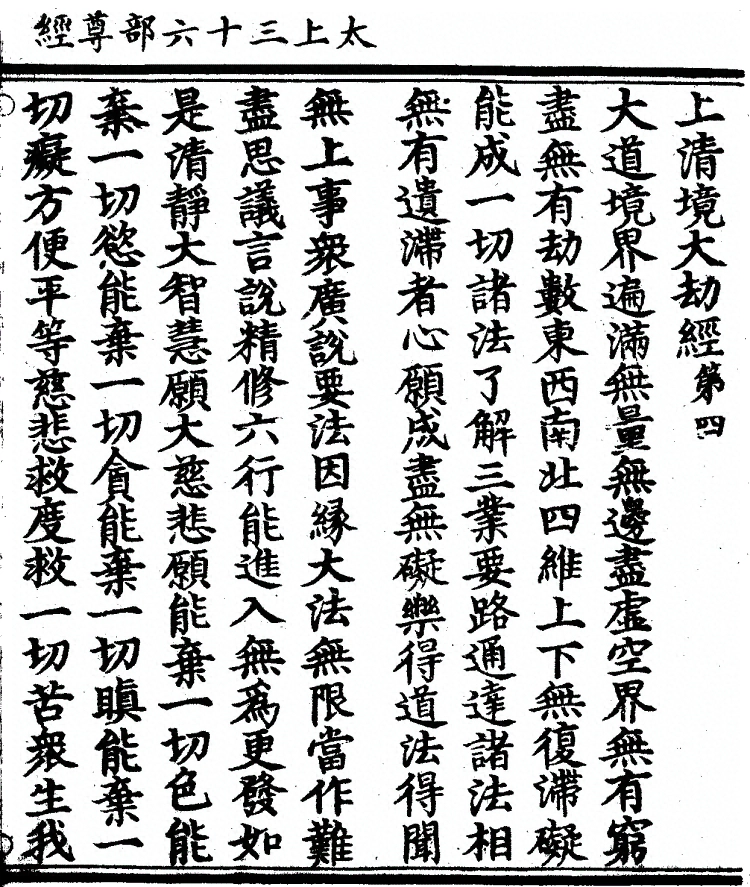 太上三十六部尊經
上清境大劫經第四
大道境界遍滿無量無邊盡虛空界無有窮
盡無有劫數東西南北四維上下無復滯礙
能成一切諸法了解三業要路通達諸法相
無有遺滯者心願成盡無礙樂得道法得聞
無上事衆廣說要法因緣大法無限當作難
盡思議言說精修六行能進入無爲更發如
是清靜大智慧願大慈悲願能棄一切色能
棄一切慾能棄一切貪能棄一切瞋能棄一
切癡方便平等慈悲救度救一切苦衆生我